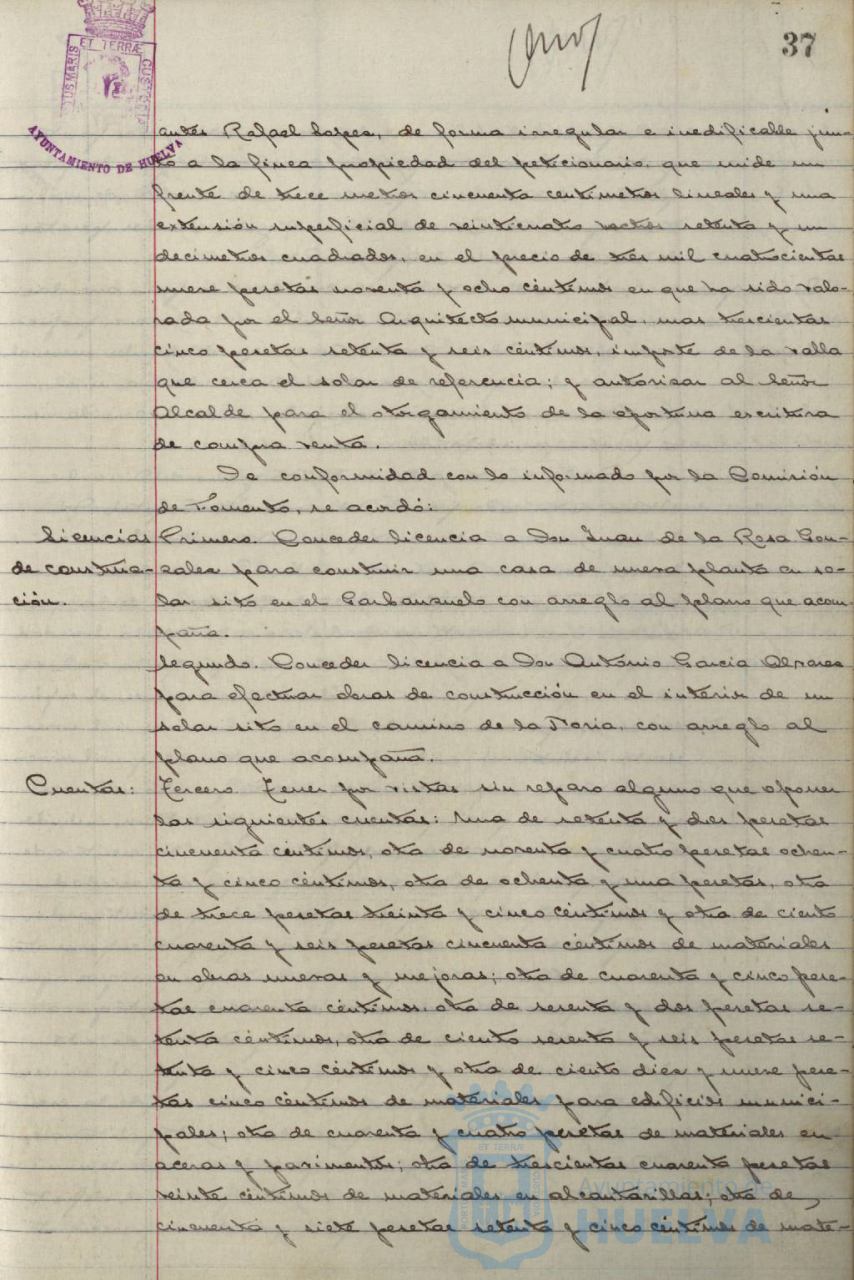 37
PORTUS MARIS ET TERRÆ CUSTODIA
AYUNTAMIENTO DE HUELVA
antes Rafael Lopez, de forma irregular e inedificable jun-
to a la finca propiedad del peticionario, que mide un
frente de trece metros cincuenta centimetros lineales y una
extensión superficial de veinticuatro metros setenta y un
decimetros cuadrados, en el precio de tres mil cuatrocientas
nueve pesetas noventa y ocho céntimos en que ha sido valo-
rada por el Señor Arquitecto municipal, mas trescientas
cinco pesetas setenta y seis céntimos, importe de la valla
que cerca el solar de referencia; y autorizar al Señor
Alcalde para el otorgamiento de la oportuna escritura
de compra venta.
De conformidad con lo informado por la Comisión
de Fomento, se acordó:
Licencias de construc-
ción.
Primero. Conceder licencia a Don Juan de la Rosa Gon-
zalez para construir una casa de nueva planta en so-
lar sito en el Garbanzuelo con arreglo al plano que acom-
paña.
Segundo. Conceder licencia a Don Antonio Garcia Alvarez
para efectuar obras de construcción en el interior de un
solar sito en el camino de la Noria, con arreglo al
plano que acompaña.
Cuentas:
Tercero. Tener por vistas sin reparo alguno que oponer
las siguientes cuentas: Una de setenta y dos pesetas
cincuenta céntimos, otra de noventa y cuatro pesetas ochen-
ta y cinco céntimos, otra de ochenta y una pesetas, otra
de trece pesetas treinta y cinco céntimos y otra de ciento
cuarenta y seis pesetas cincuenta céntimos de materiales
en obras nuevas y mejoras; otra de cuarenta y cinco pese-
tas cuarenta céntimos, otra de sesenta y dos pesetas se-
tenta céntimos, otra de ciento sesenta y seis pesetas se-
tenta y cinco céntimos y otra de ciento diez y nueve pese-
tas cinco céntimos de materiales para edificios munici-
pales; otra de cuarenta y cuatro pesetas de materiales en
aceras y pavimentos; otra de trescientas cuarenta pesetas
veinte céntimos de materiales en alcantarillas; otra de
cincuenta y siete pesetas setenta y cinco céntimos de mate-
Ayuntamiento de
HUELVA